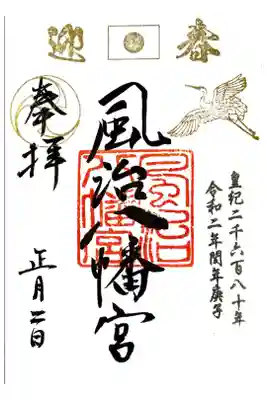 迎春
皇紀二千六百八十年
令和二年閏年庚子
風治八幡宮
風治
八幡宮
奉拝
正月二日